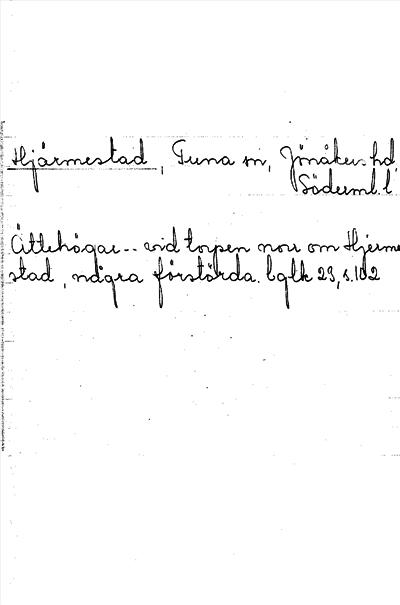 Hjärmestad, Tuna sn, Jönåkers hd,
Söderml. l.
Ättehögar -- vid torpen norr om Hjerme
stad, några förstörda. bglk 23, s. 102